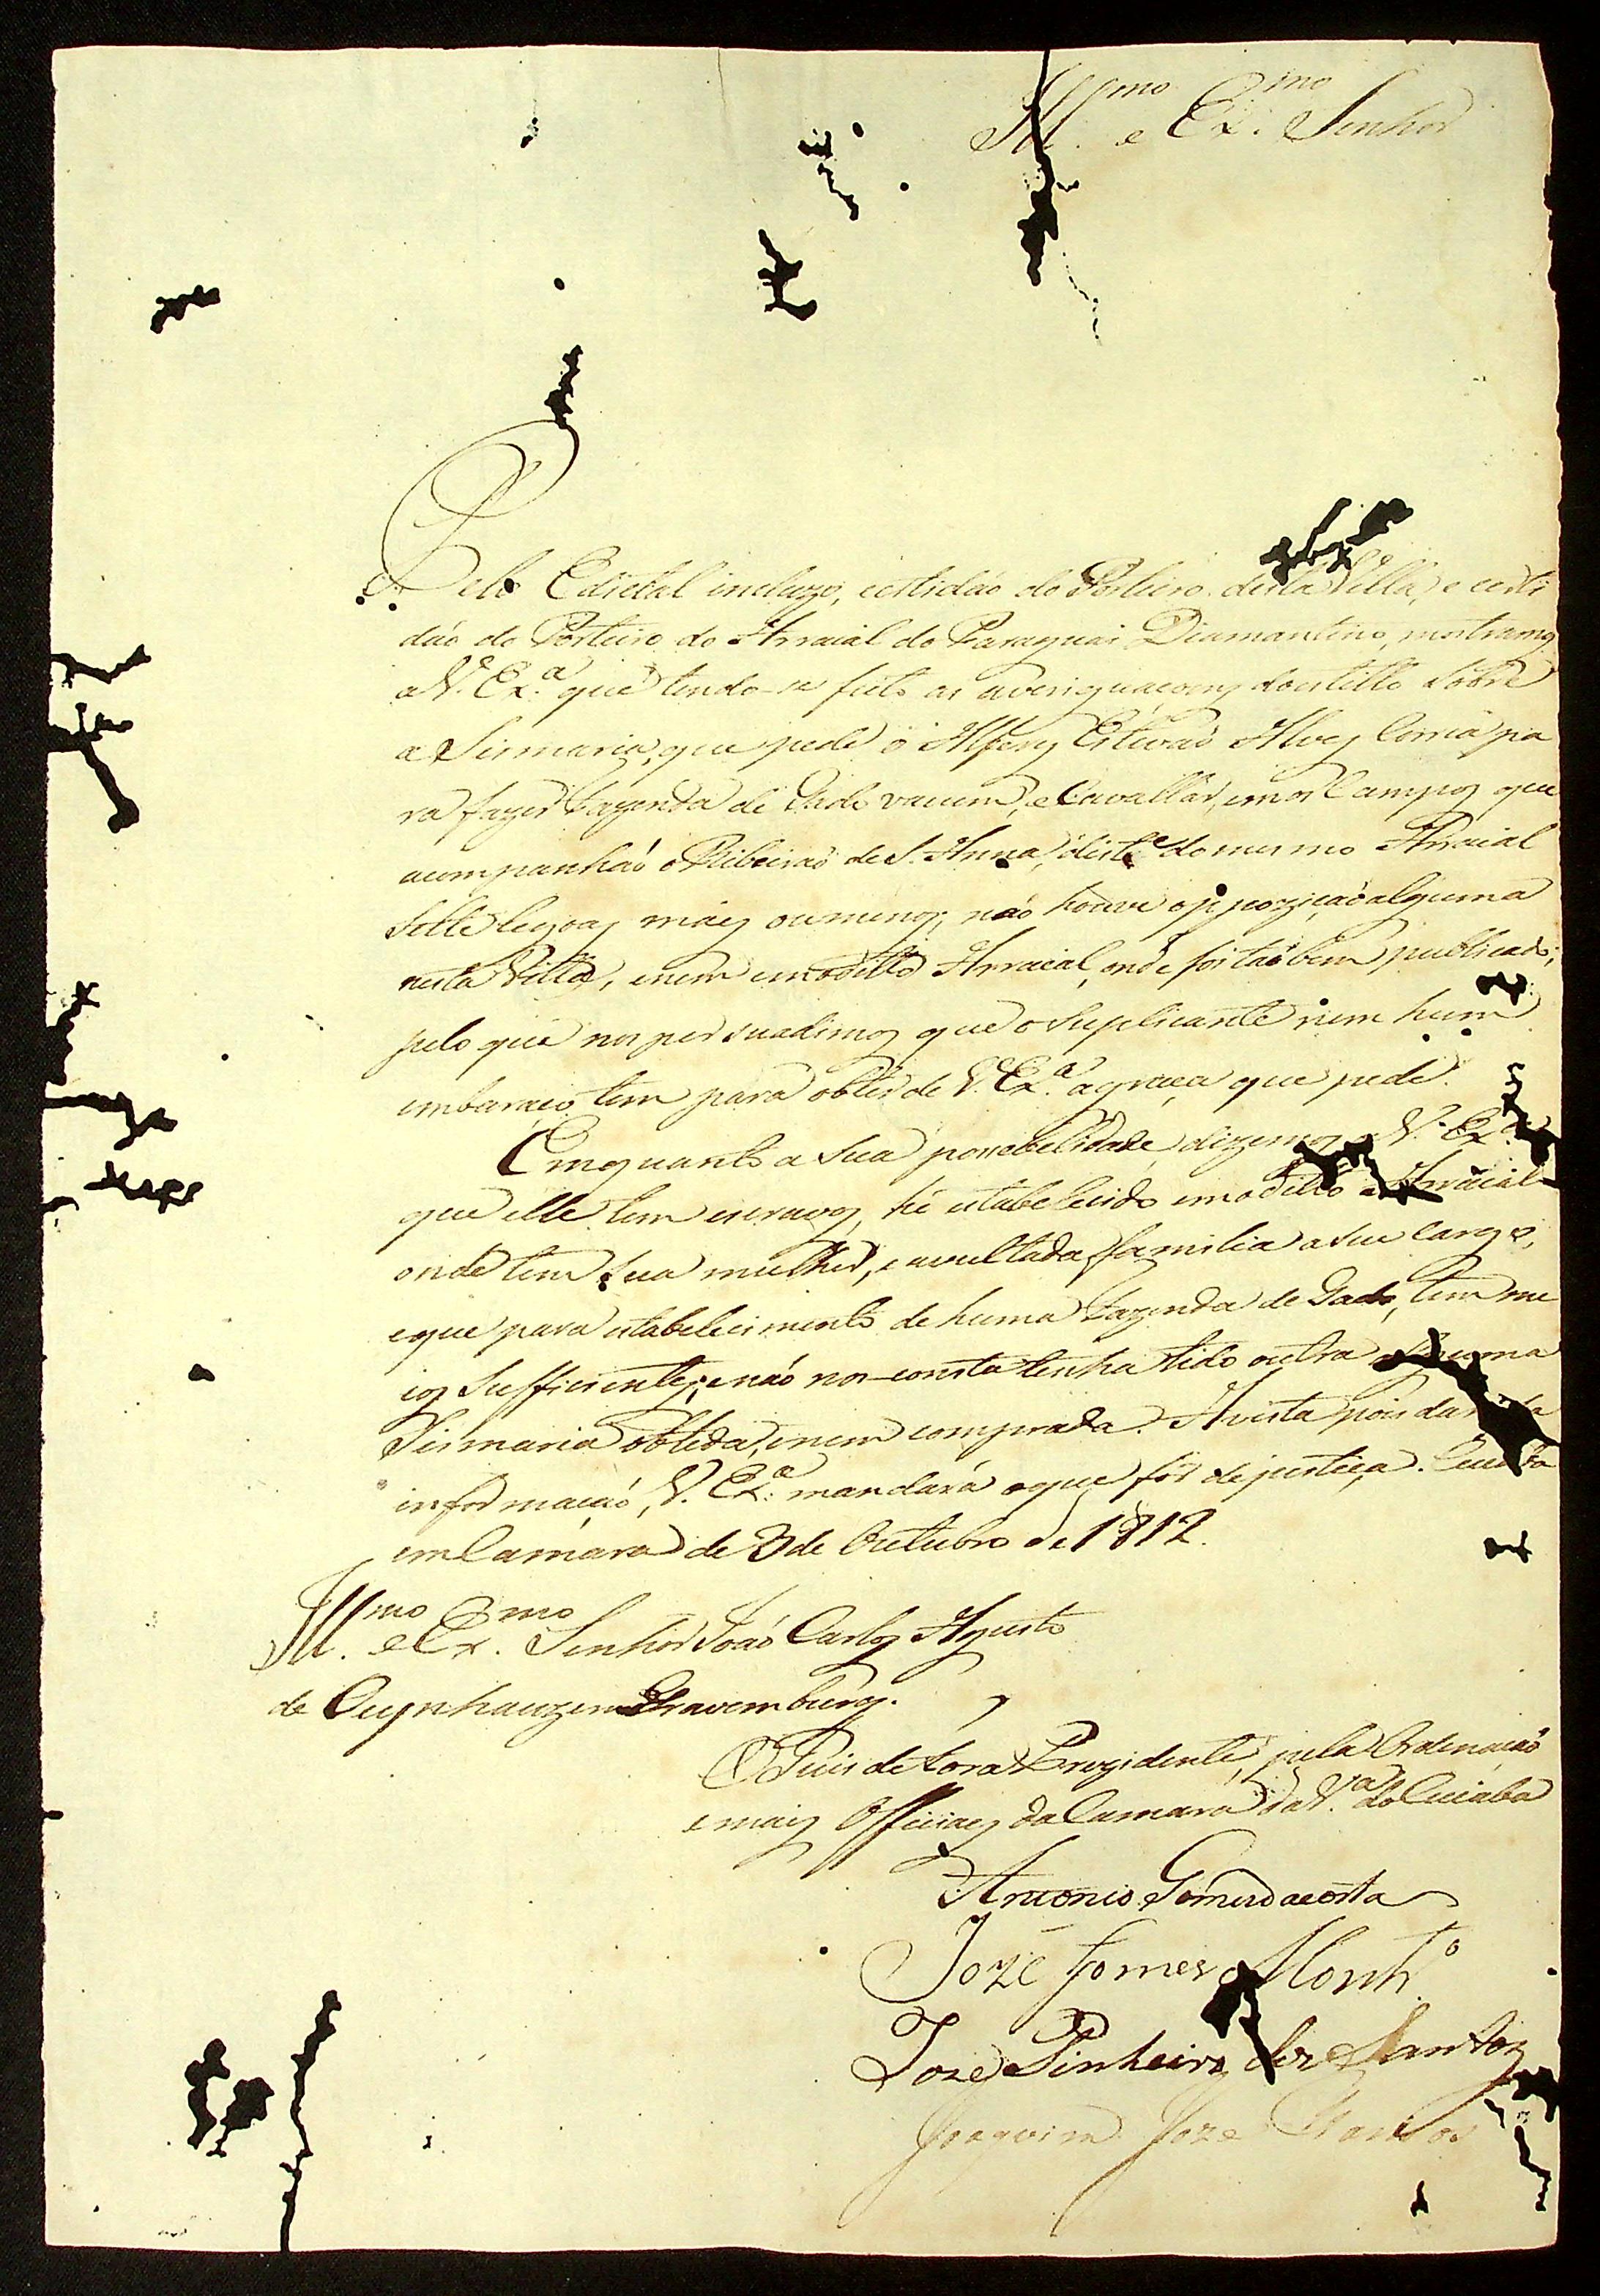 Ill.mo e Ex.mo Senhor
Pelo Edictal incluzo, certidao do Porteiro desta Villa, e certi
dáo do Porteiro do Arraial do Paraguai Diamantino, mostramos
a V. Ex.a que tendo-se feito as averiguaçoens do estillo sobre
a Sismaria, que pede o Alferes Estevaõ Alves Corrêa pa
ra fazer Fazenda de Gado vacum, e Cavallar, em os Campos que
acompanháo o Ribeiraõ de S. Anna, dist.e do mesmo Arraial
sette legoas mais ou menos; náo houve oppoziçaõ alguma
nesta Villa, e nem em o ditto Arraial, onde foi taõ bem publicado;
pelo que nos persuadimos que o Suplicante nem hum
embaraço tem para obter de V. Ex.a a graça que pede.
Emquanto a sua possebelidade, dizemos a V. Ex.a
que elle tem escravos, hé estabelecido em o ditto Arraial
onde tem sua mulher, e avultada familia a seu cargo,
e que para estabelecimento de huma Fazenda de Gado, tem me
ios sufficientes; e náo nos consta tenha tido outra alguma
Sismaria obtida, e nem comprada. A vista pois da
informaçaó, V. Ex.a mandará o que for de justiça. Cuiaba
em Camara de 3 de Outubro de 1812.
Ill.mo e Ex.mo Senhor Joáo Carlos Agusto
de Oeynhauzem Gravemburg.
O Juis de Fora Prezidente, pela Ordenaçaõ
e mais Officiaes da Camara da V.a do Cuiaba
Antonio Gomes da Costa
Jozé Gomes Mont.o
Joze Pinheiro dos Santos
Joaquim Joze Santos